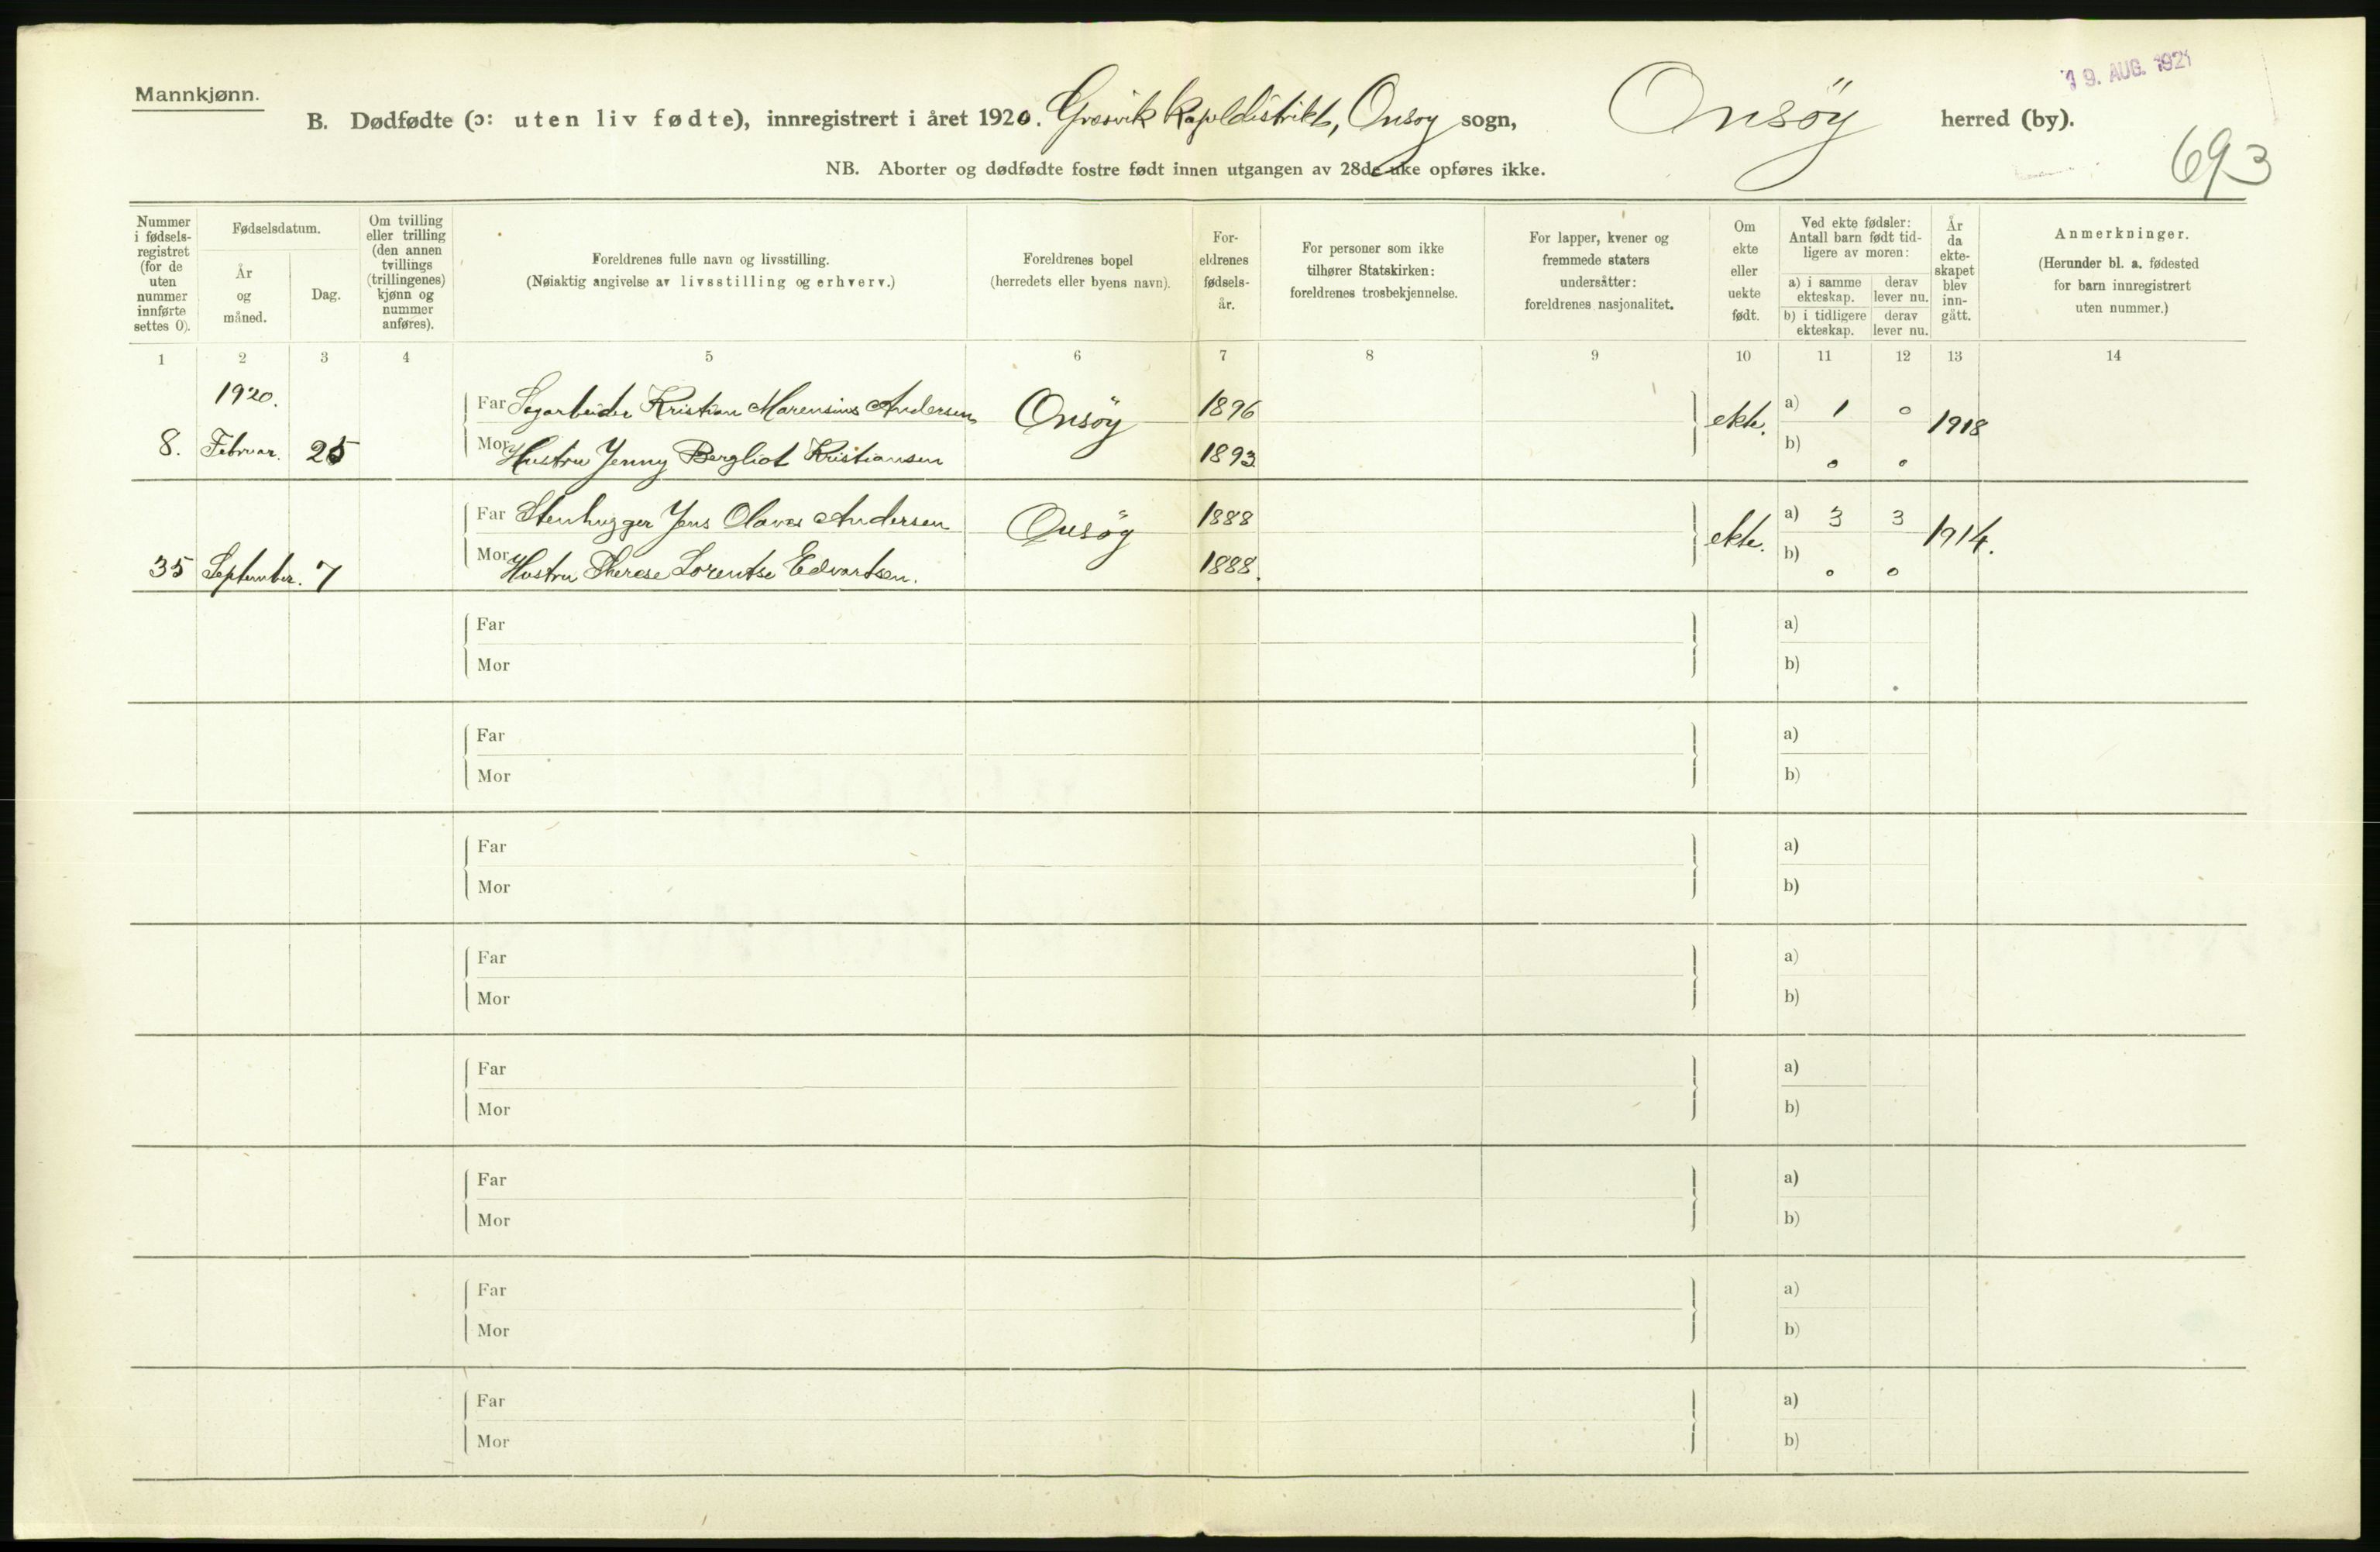 Mannkjønn.
19. AUG. 1921
B. Dødfødte (ɔ: uten liv fødte), innregistrert i året 1920. Græsvik kapeldistrikt, Onsøy sogn, Onsöy herred (by).
693
NB. Aborter og dødfødte fostre født innen utgangen av 28de uke opføres ikke.
Nummer i fødsels-registret (for de uten nummer innførte settes 0).
Fødselsdatum.
År og måned.
Dag.
Om tvilling eller trilling (den annen tvillings (trillingenes) kjønn og nummer anføres).
Foreldrenes fulle navn og livsstilling.
(Nøiaktig angivelse av livsstilling og erhverv.)
Foreldrenes bopel
(herredets eller byens navn).
For-eldrenes fødsels-år.
For personer som ikke tilhører Statskirken: foreldrenes trosbekjennelse.
For lapper, kvener og fremmede staters undersåtter: foreldrenes nasjonalitet.
Om ekte eller uekte født.
Ved ekte fødsler: Antall barn født tid-ligere av moren:
a) i samme ekteskap.
derav lever nu.
b) i tidligere ekteskap.
derav lever nu.
År da ekte-skapet blev inn-gått.
Anmerkninger.
(Herunder bl. a. fødested for barn innregistrert uten nummer.)
1 2 3 4 5 6 7 8 9 10 11 12 13 14
1920.
Far Sagarbeider Kristian Marensius Andersen Onsöy 1896 ekte. a) 1 0 1918
8. Februar. 25 Mor Hustru Jenny Bergliot Kristiansen 1893 b) 0 0
Far Stenhugger Jens Olaves Andersen Onsöy 1888 ekte. a) 3 3 1914.
35 September. 7 Mor Hustru Therese Lorentse Edvartsen. 1888. b) 0 0
Far a)
Mor b)
Far a)
Mor b)
Far a)
Mor b)
Far a)
Mor b)
Far a)
Mor b)
Far a)
Mor b)
Far a)
Mor b)
Far a)
Mor b)